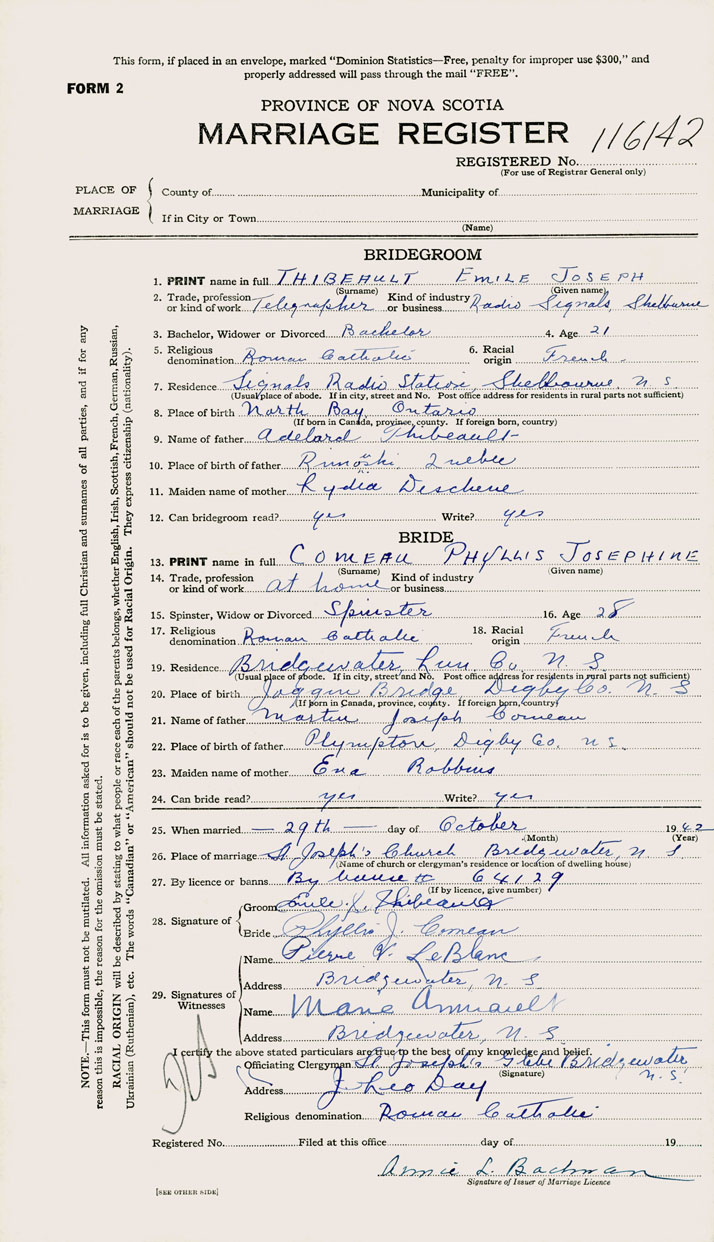 This form, if placed in an envelope, marked "Dominion Statistics—Free, penalty for improper use $300," and
properly addressed will pass through the mail "FREE".
FORM 2
PROVINCE OF NOVA SCOTIA
MARRIAGE REGISTER 116142
REGISTERED No.
(For use of Registrar General only)
PLACE OF MARRIAGE
County of Municipality of
If in City or Town
(Name)
BRIDEGROOM
1. PRINT name in full THIBEAULT EMILE JOSEPH
(Surname) (Given name)
2. Trade, profession or kind of work Telegrapher Kind of industry or business Radio Signals, Shelburne
3. Bachelor, Widower or Divorced Bachelor 4. Age 21
5. Religious denomination Roman Catholic 6. Racial origin French
7. Residence Signals Radio Station, Shelbourne, N S
(Usual place of abode. If in city, street and No. Post office address for residents in rural parts not sufficient)
8. Place of birth North Bay, Ontario
(If born in Canada, province, county. If foreign born, country)
9. Name of father Adelard Thibeault
10. Place of birth of father Quebec
11. Maiden name of mother Lydia Deschene
12. Can bridegroom read? yes Write? yes
BRIDE
13. PRINT name in full COMEAU PHYLLIS JOSEPHINE
(Surname) (Given name)
14. Trade, profession or kind of work at home Kind of industry or business
15. Spinster, Widow or Divorced Spinster 16. Age 28
17. Religious denomination Roman Catholic 18. Racial origin French
19. Residence Bridgewater, Lun. Co. N. S.
(Usual place of abode. If in city, street and No. Post office address for residents in rural parts not sufficient)
20. Place of birth Joggin Bridge Digby Co. N. S
(If born in Canada, province, county. If foreign born, country)
21. Name of father Martin Joseph Comeau
22. Place of birth of father Plympton, Digby Co. N S.
23. Maiden name of mother Eva Robbins
24. Can bride read? yes Write? yes
25. When married — 29th — day of October 1942
(Month) (Year)
26. Place of marriage St Joseph's Church Bridgewater, N S
(Name of church or clergyman's residence or location of dwelling house)
27. By licence or banns By 64129
(If by licence, give number)
28. Signature of
Groom Emile J. Thibeault
Bride Phyllis J. Comeau
29. Signatures of Witnesses
Name Pierre V. LeBlanc
Address Bridgewater, N. S
Name Marie
Address Bridgewater, N. S.
I certify the above stated particulars are true to the best of my knowledge and belief.
Officiating Clergyman St Joseph's Glebe Bridgewater N. S.
(Signature)
Address J. Leo Day
Religious denomination Roman Catholic
Registered No. Filed at this office day of 19
Annie L. Bachman
Signature of Issuer of Marriage Licence
[SEE OTHER SIDE]
NOTE.—This form must not be mutilated. All information asked for is to be given, including full Christian and surnames of all parties, and if for any
reason this is impossible, the reason for the omission must be stated.
RACIAL ORIGIN will be described by stating to what people or race each of the parents belongs, whether English, Irish, Scottish, French, German, Russian,
Ukrainian (Ruthenian), etc. The words "Canadian" or "American" should not be used for Racial Origin. They express citizenship (nationality).